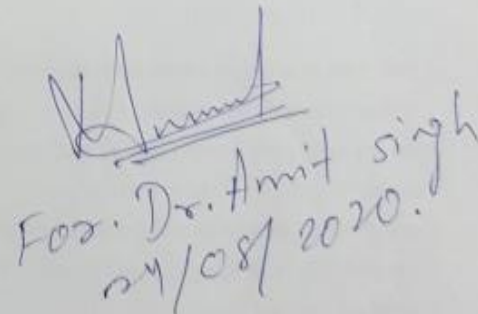 For. Dr. Amit singh
24/08/2020.